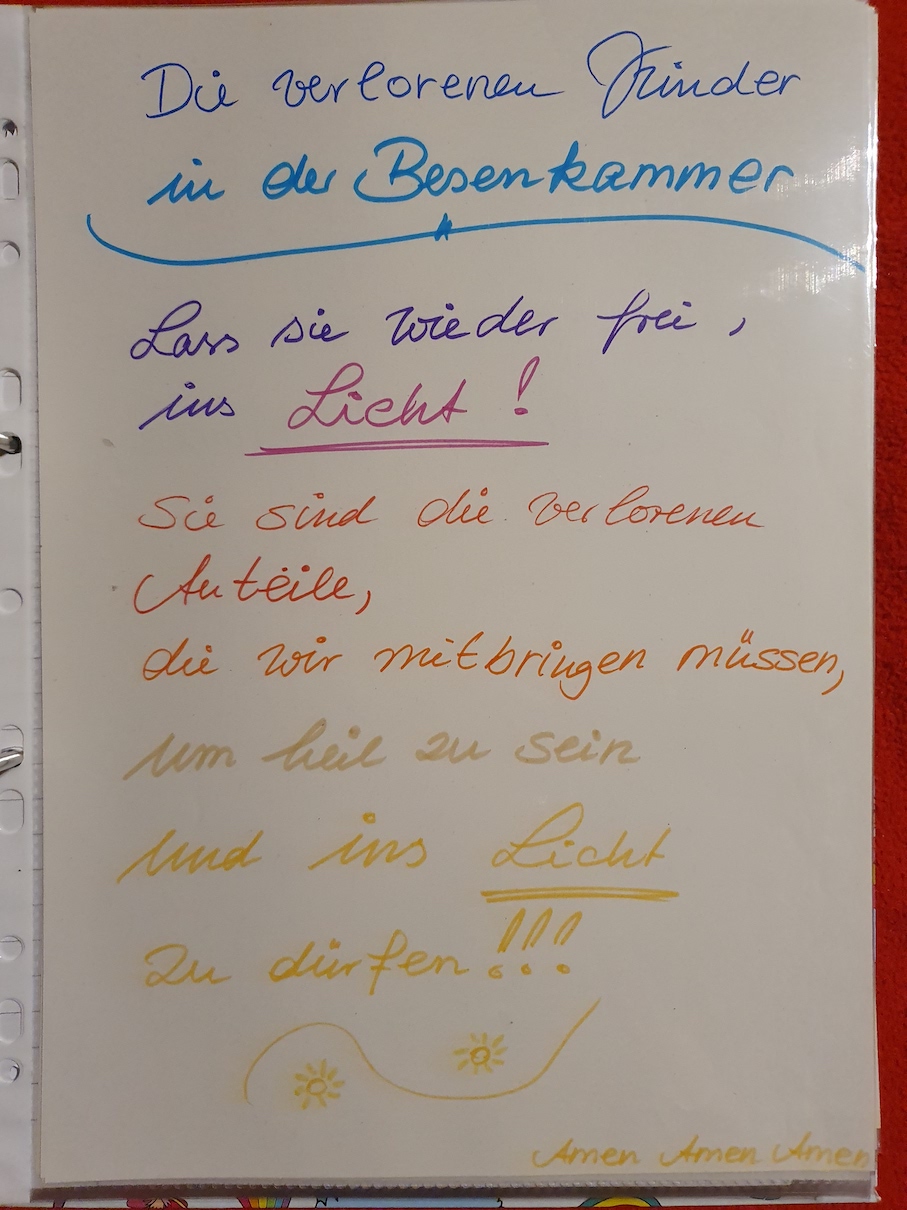 Die verlorenen Kinder
in der Besenkammer
Lass sie wieder frei,
ins Licht!
Sie sind die verlorenen
Anteile,
die wir mitbringen müssen,
um heil zu sein
und ins Licht
zu dürfen!!!
Amen Amen Amen